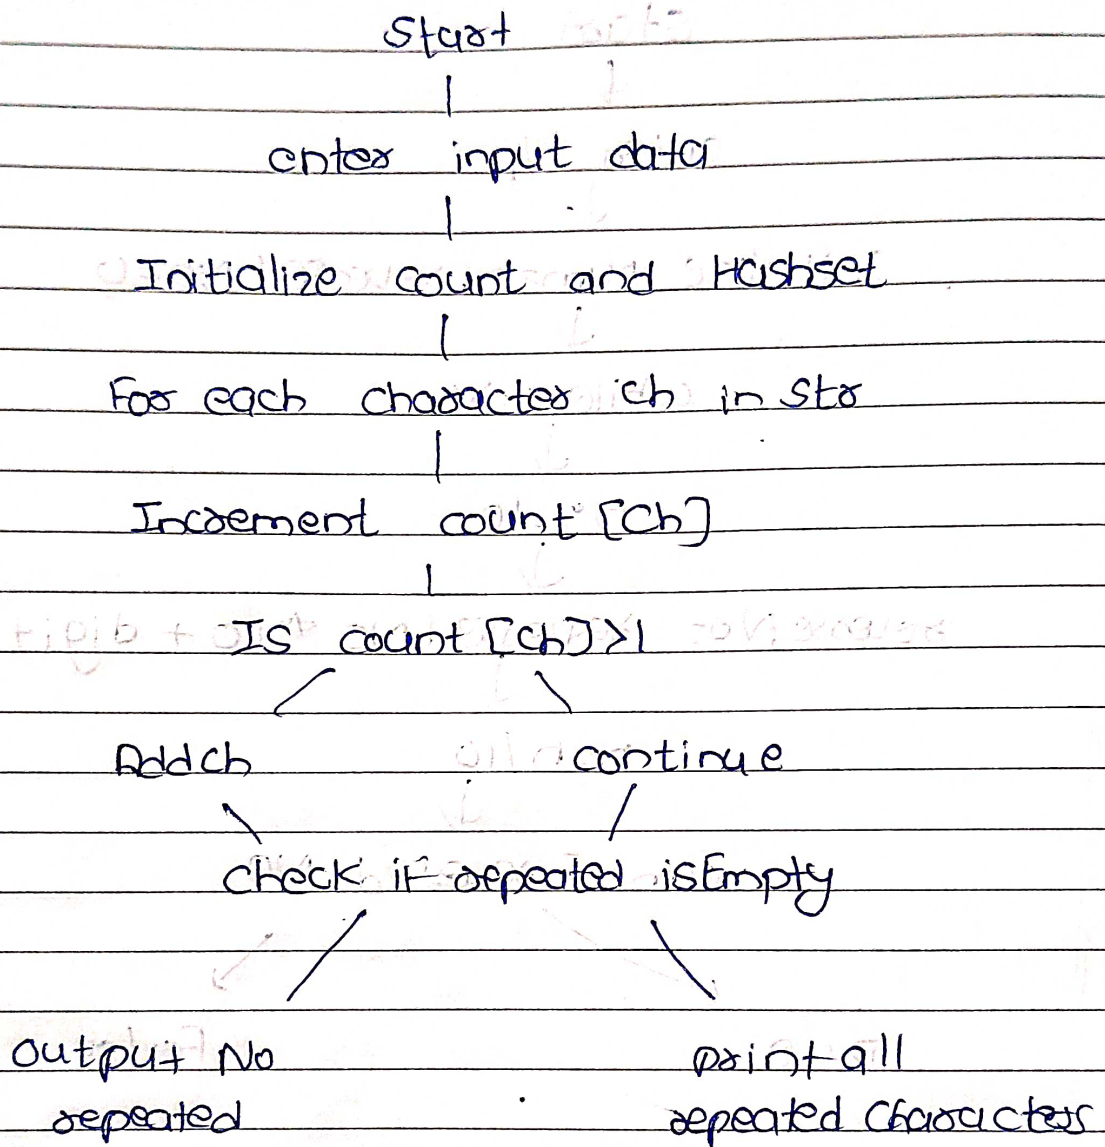 Start
enter input data
Initialize count and Hashset
For each character ch in Str
Increment count [Ch]
Is count [Ch]>1
Add ch continue
check if repeated isEmpty
output No print all
repeated repeated Characters